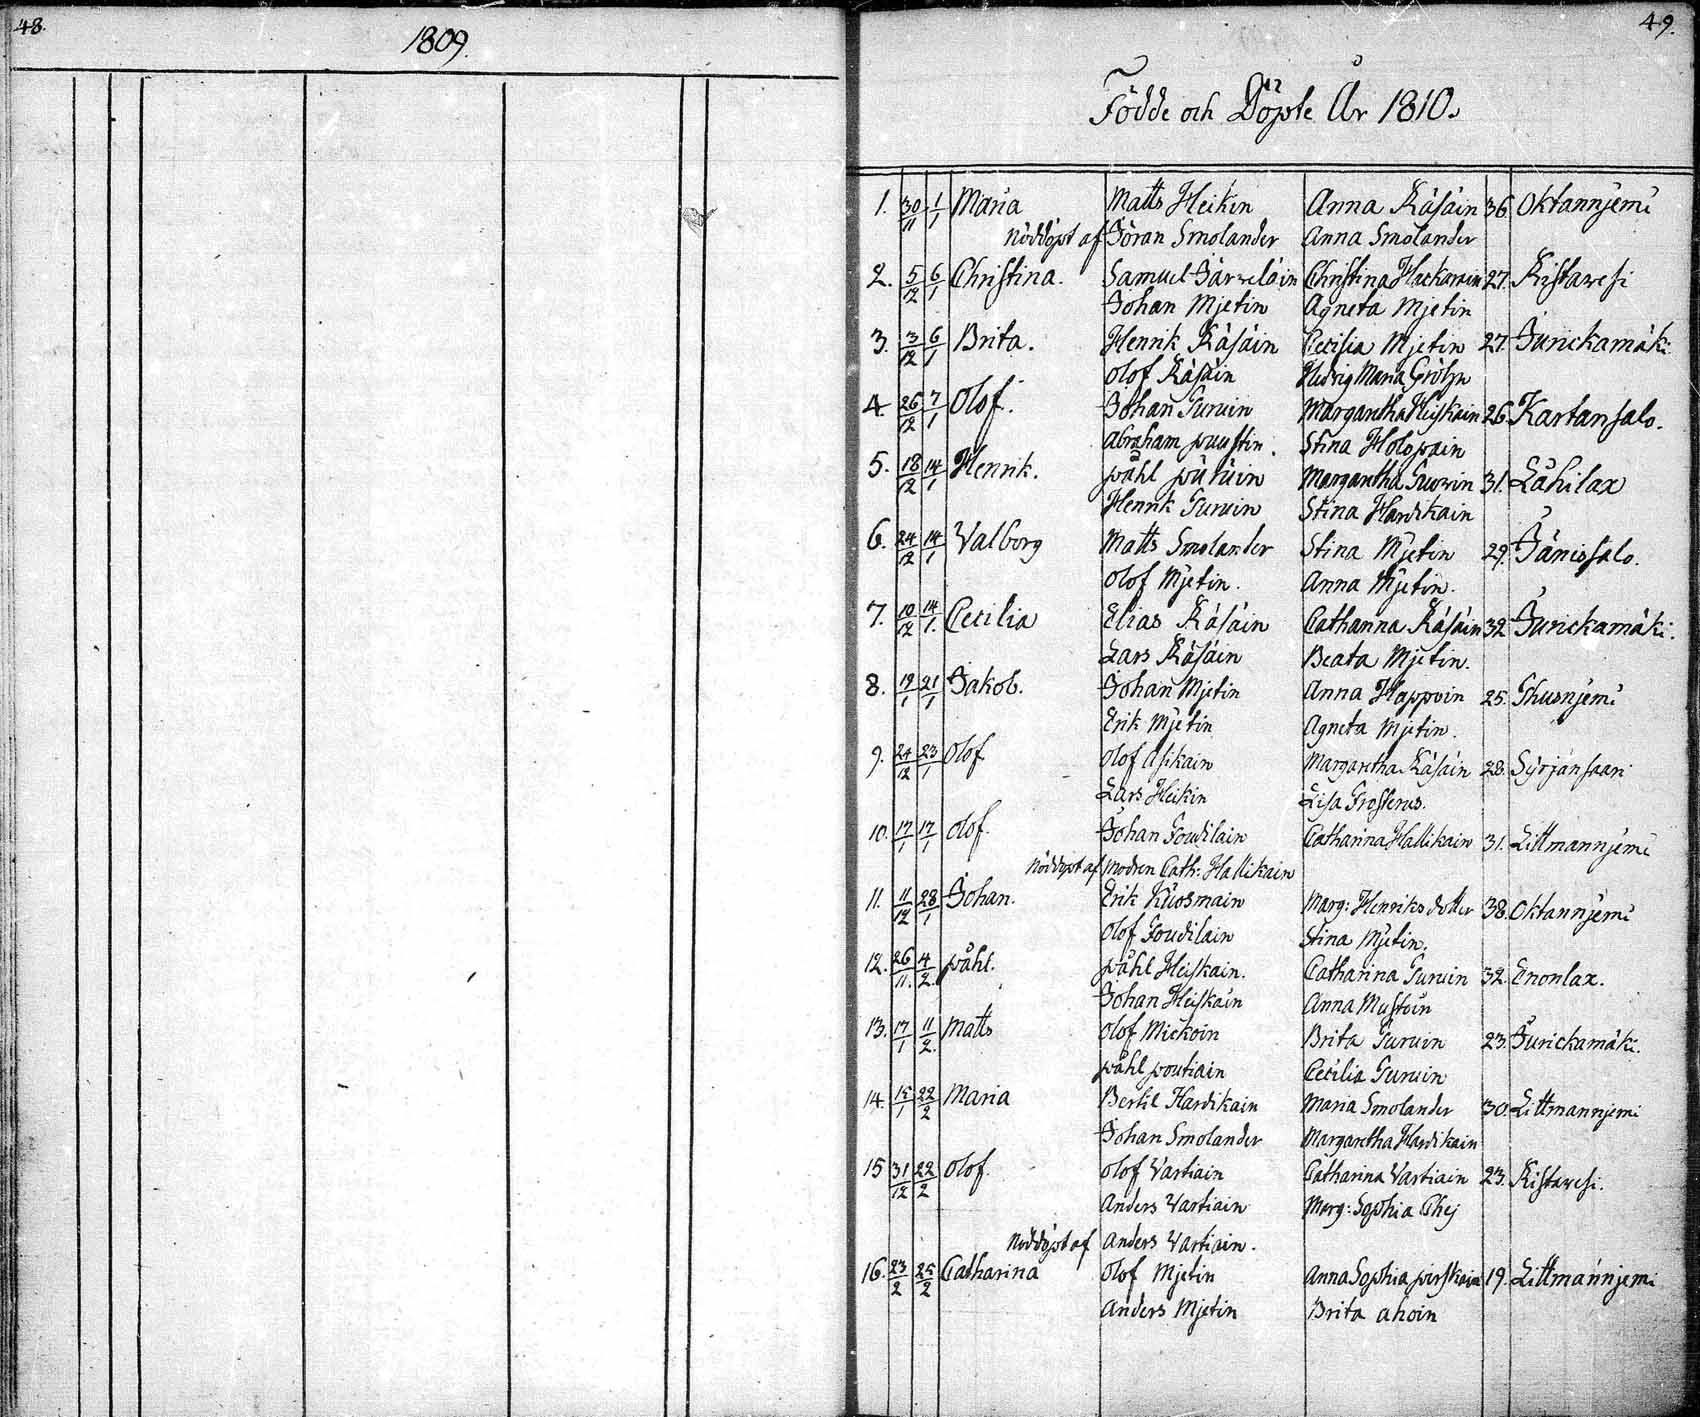 48.
1809.
49.
Födde och Döpte År 1810.
1. 30/11 1/1 Maria Matts Heikin Anna Räsäin 36. Oktannjemi
Nöddöpt af Jöran Smolander Anna Smolander
2. 5/12 6/1 Christina. Samuel Järveläin Christina Hackarain 27. Ristawesi
Johan Mjetin Agneta Mjetin
3. 3/12 6/1 Brita. Henrik Räsäin Cecilia Mjetin 27. Jurickamäki
Olof Räsäin Hedvig Maria
4. 26/12 7/1 Olof. Johan Turuin Margaretha Heiskain 26. Kartansalo.
Abraham puustin. Stina Holopain
5. 18/12 14/1 Henrik. påhl Margaretha Turuin 31. Lähilax
Henrik Turuin Stina Hardikain
6. 24/12 14/1 Valborg Matts Smolander Stina Mjetin 29. Jänissalo.
Olof Mjetin. Anna Mjetin.
7. 10/12 14/1. Cecilia Elias Räsäin Catharina Räsäin 32 Jurickamäki.
Lars Räsäin Beata Mjetin.
8. 19/1 21/1 Jakob. Johan Mjetin Anna Happoin 25. Ihusnjemi
Erik Mjetin Agneta Mjetin.
9. 24/12 23/1 Olof Olof Asikain Margaretha Räsäin 28. Syrjänsaari
Lars Heikin Lisa Froserus.
10. 17/1 17/1 Olof. Johan Goudilain Catharina Hallikain 31. Littmannjemi
Nöddöpt af modren Cath: Hallikain
11. 11/12 28/1 Johan. Erik Kuosmain Marg: Henriksdotter 38. Oktannjemi
Olof Goudilain Stina Mjetin.
12. 26/11. 4/2. påhl. påhl Heiskain. Catharina Turuin 32. Enonlax.
Johan Heiskain Anna Mustoin
13. 17/1 11/2. Matts Olof Mickoin Brita Turuin 23. Jurickamäki.
påhl poutiain Cecilia Turuin
14. 15/1 22/2 Maria Bertil Hardikain Maria Smolander 30. Littmannjemi
Johan Smolander Margaretha Hardikain
15 31/12 22/2 Olof. Olof Vartiain Catharina Vartiain 23. Ristawesi.
Anders Vartiain Marg: Sophia Chej
Nöddöpt af Anders Vartiain.
16. 23/2 25/2 Catharina Olof Mjetin Anna Sophia pirskain 19. Littmannjemi
Anders Mjetin Brita Ahoin